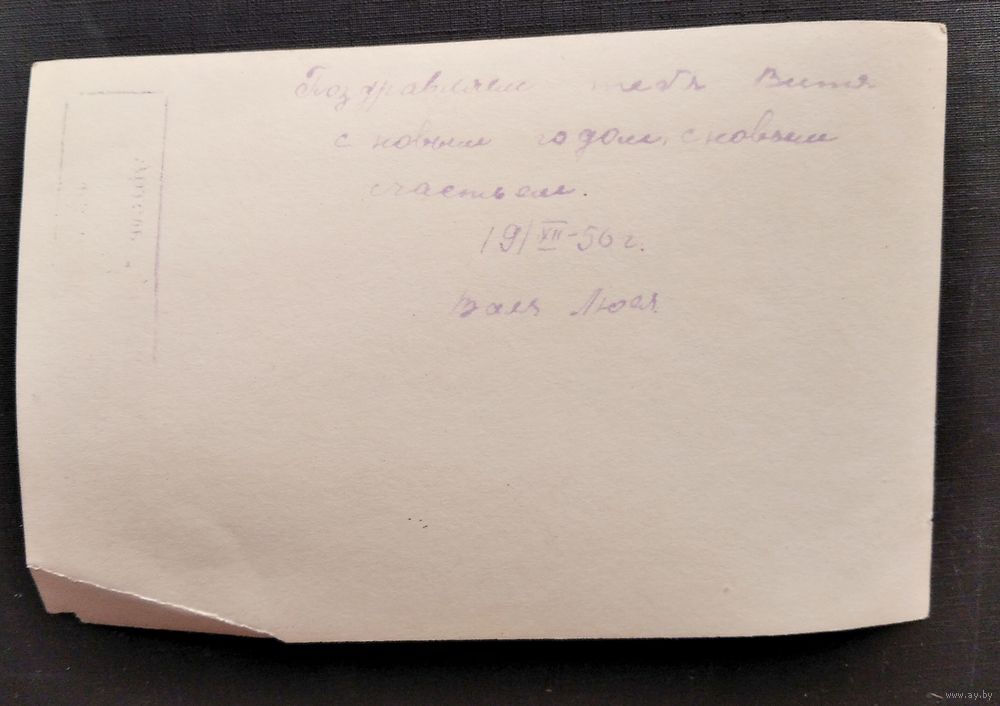 Поздравляем тебя Витя
с новым годом, с новым
счастьем.
19/XII-56 г.
Валя Люся.
www.ay.by